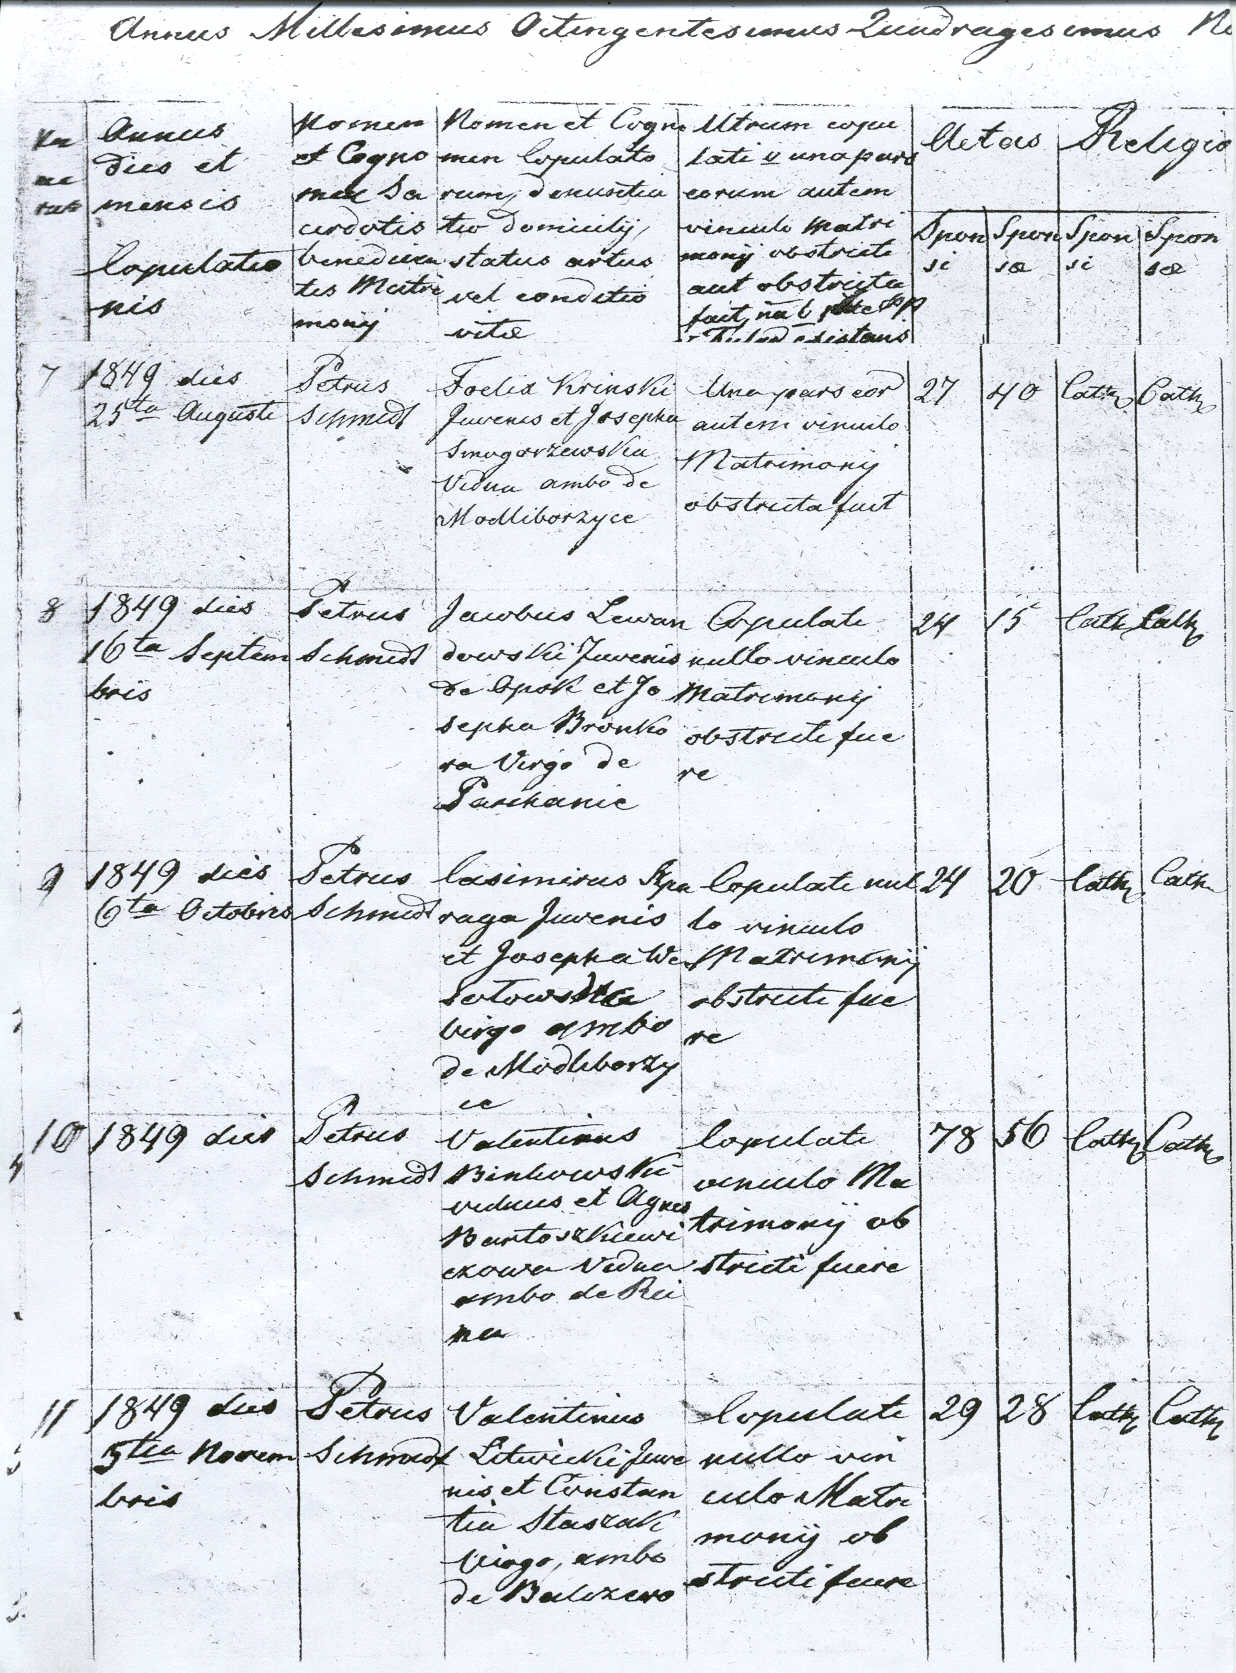 Annus Millesimus Octingentesimus Quadragesimus
Nu
me
rus
Annus
dies et
mensis
Copulatio
nis
Nomen
et Cogno
men Sa
cerdotis
benedicen
tis Matri
monij
Nomen et Cogno
men Copulato
rum, denuntia
tio domicilij,
status ortus
vel conditio
vitæ
Utrum copu
lati v una pars
eorum autem
vinculo matri
monij obstricti
aut obstricta
fuit,
Aetas
Religio
Spon
si
Spon
sæ
Spon
si
Spon
sæ
7
1849 dies
25ta Augusti
Petrus
Schmidt
Foelix Krinski
Juvenis et Josepha
Smogorzewska
Vidua ambo de
Modliborzyce
Una pars eor
autem vinculo
Matrimonij
obstricta fuit
27
40
Cath
Cath
8
1849 dies
16ta Septem
bris
Petrus
Schmidt
Jacobus Lewan
dowski Juvenis
de Opok et Jo
sepha Bronko
ra Virgo de
Parchanie
Copulati
nullo vinculo
Matrimonij
obstricti fue
re
24
15
Cath
Cath
9
1849 dies
6ta Octobris
Petrus
Schmidt
Casimirus Szpa
raga Juvenis
et Josepha We
sołowska
virgo ambo
de Modliborzy
ce
Copulati nul
lo vinculo
Matrimonij
obstricti fue
re
24
20
Cath
Cath
10
1849 dies
Petrus
Schmidt
Valentinus
Binkowski
viduus et Agnes
Bartoszkiewi
czowa Vidua
ambo de Rei
na
Copulati
vinculo Ma
trimonij ob
stricti fuere
78
56
Cath
Cath
11
1849 dies
5tia Novem
bris
Petrus
Schmidt
Valentinus
Litwicki Juve
nis et Constan
tia Staszak
Virgo, ambo
de Balczewo
Copulati
nullo vin
culo Matri
monij ob
stricti fuere
29
28
Cath
Cath